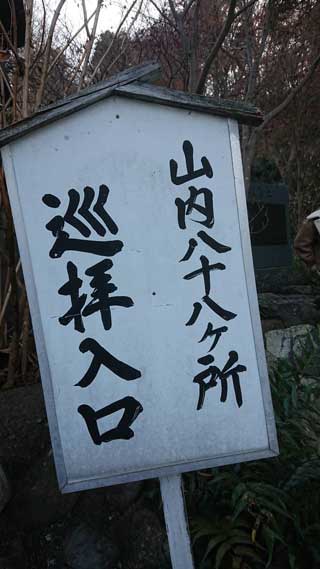 山内八十八ヶ所
巡拝入口